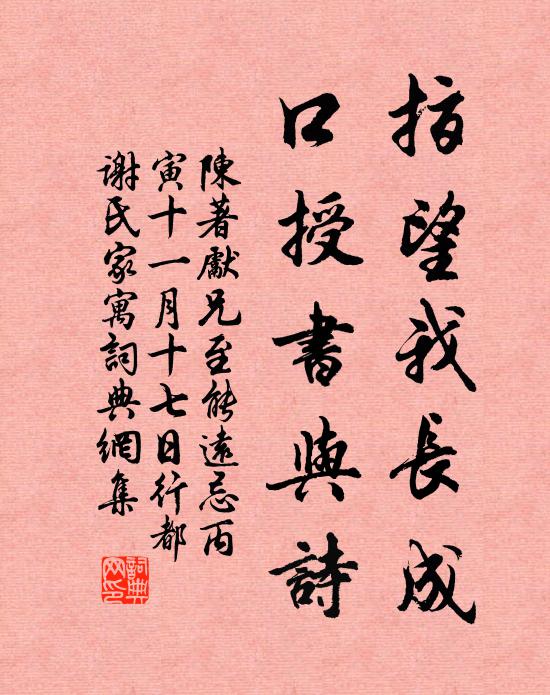 指望我長成
口授書與詩
陳著獻兄至能遠忌丙
寅十一月十七日行都
謝氏家寓詞典網集
詞典網印